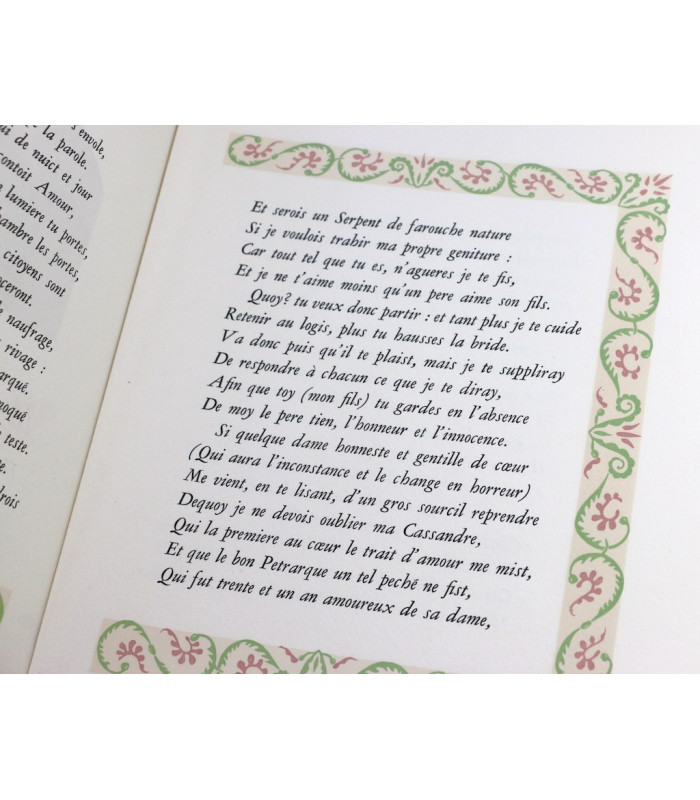 s envole,
e la parole.
ui de nuict et jour
contoit Amour,
e lumiere tu portes,
chambre les portes,
citoyens sont
nceront.
le naufrage,
rivage :
arqué.
moqué
teste.
te.
drois
Et serois un Serpent de farouche nature
Si je voulois trahir ma propre geniture :
Car tout tel que tu es, n'agueres je te fis,
Et je ne t'aime moins qu'un pere aime son fils.
Quoy? tu veux donc partir : et tant plus je te cuide
Retenir au logis, plus tu hausses la bride.
Va donc puis qu'il te plaist, mais je te suppliray
De respondre à chacun ce que je te diray,
Afin que toy (mon fils) tu gardes en l'absence
De moy le pere tien, l'honneur et l'innocence.
Si quelque dame honneste et gentille de cœur
(Qui aura l'inconstance et le change en horreur)
Me vient, en te lisant, d'un gros sourcil reprendre
Dequoy je ne devois oublier ma Cassandre,
Qui la premiere au cœur le trait d'amour me mist,
Et que le bon Petrarque un tel peché ne fist,
Qui fut trente et un an amoureux de sa dame,